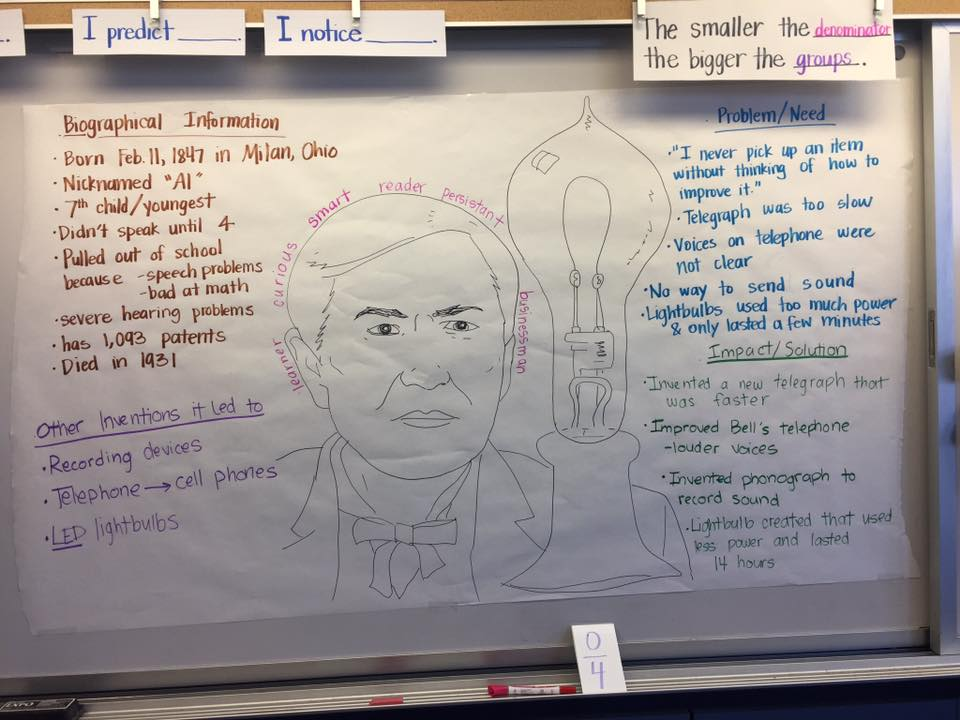 I predict ______
I notice ______
The smaller the denominator
the bigger the groups.
Biographical Information
· Born Feb. 11, 1847 in Milan, Ohio
· Nicknamed "Al"
· 7th child/youngest
· Didn't speak until 4
· Pulled out of school
because - speech problems
- bad at math
· severe hearing problems
· has 1,093 patents
· Died in 1931
Other Inventions it Led to
· Recording devices
· Telephone → cell phones
· LED lightbulbs
learner
curious
smart
reader
persistant
businessman
Problem/Need
· "I never pick up an item
without thinking of how to
improve it."
· Telegraph was too slow
· Voices on telephone were
not clear
· No way to send sound
· Lightbulbs used too much power
& only lasted a few minutes
Impact/Solution
· Invented a new telegraph that
was faster
· Improved Bell's telephone
- louder voices
· Invented phonograph to
record sound
· Lightbulb created that used
less power and lasted
14 hours
0
4
EXPO